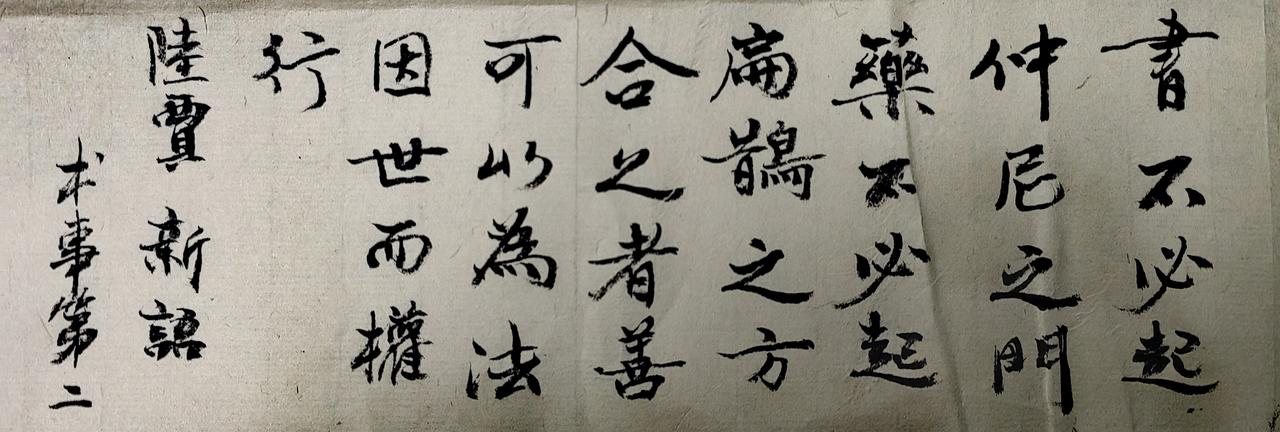 書不必起
仲尼之門
藥不必起
扁鵲之方
合之者善
可以為法
因世而權
行
陸賈新語
术事第二